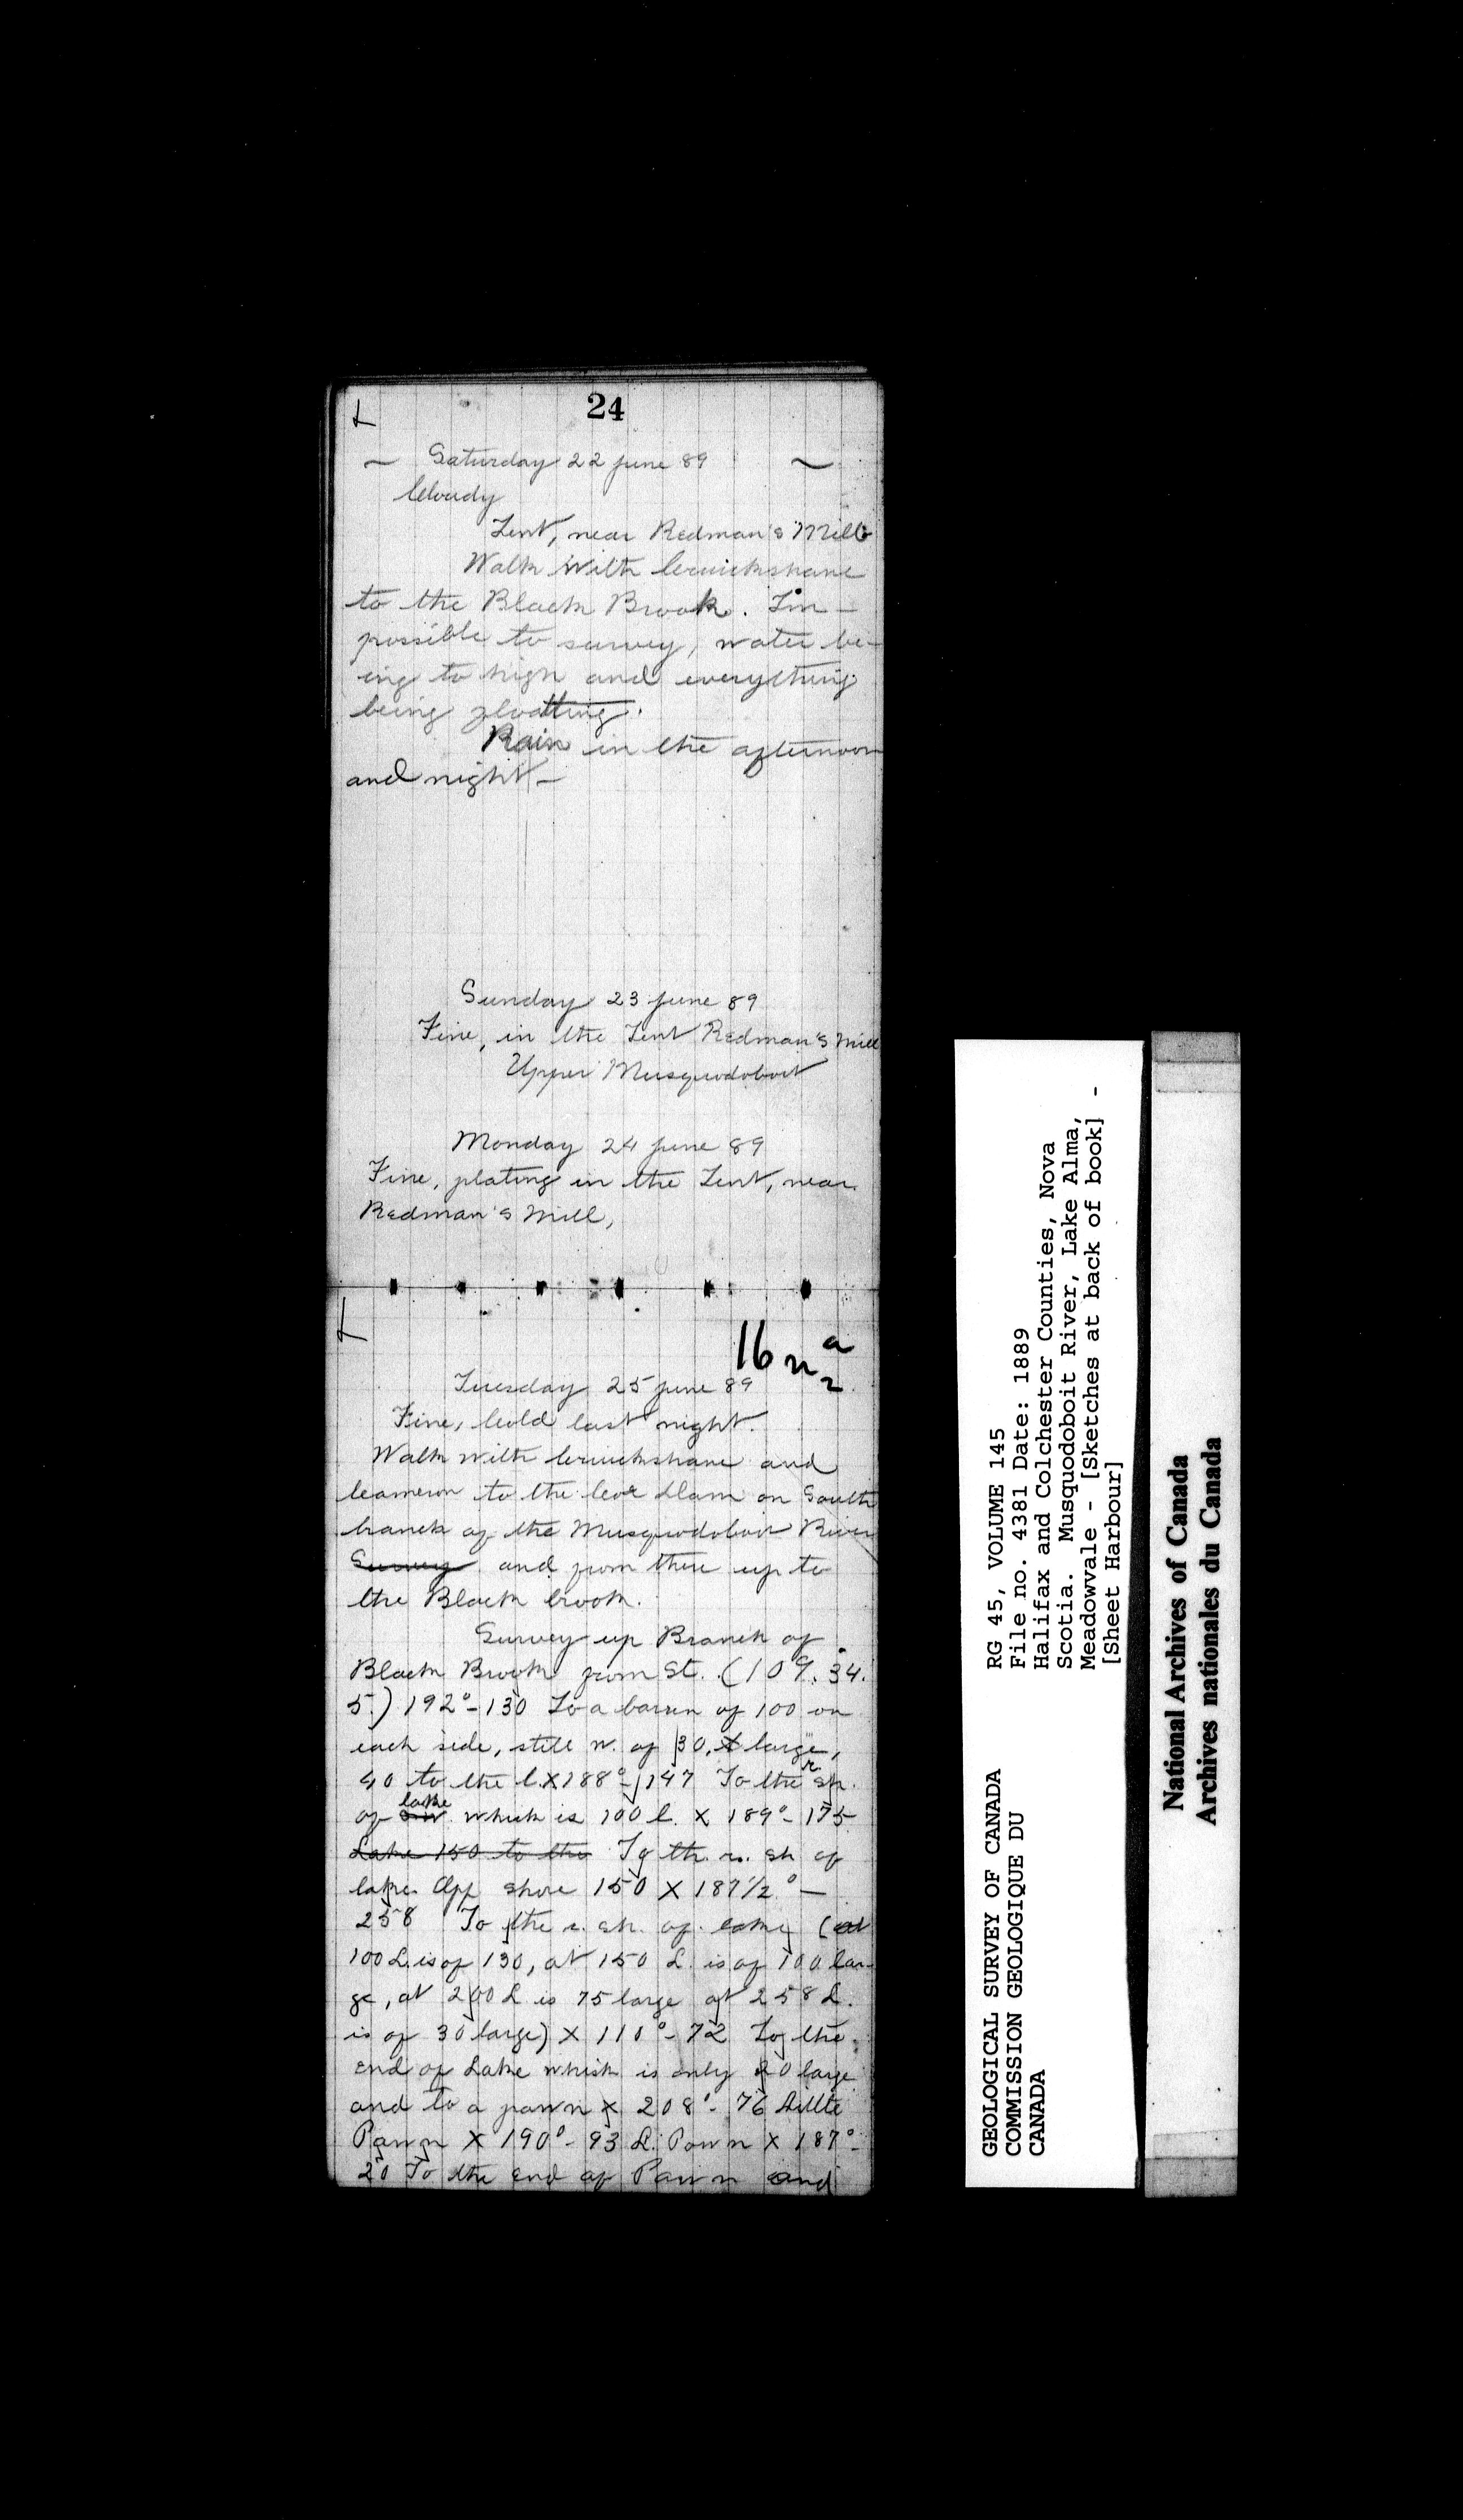 24
Saturday 22 june 89
Cloudy
Tent, near Redman's Mill
Walk with Cruickshank
to the Black Brook. Im-
possible to survey, water be-
ing to high and everything
being floatting.
Rain in the afternoon
and night -
Sunday 23 june 89
Fine, in the Tent Redman's Mill
Upper Musquodoboit
Monday 24 june 89
Fine, plating in the Tent, near
Redman's Mill,
16
Tuesday 25 june 89
Fine, Cold last night.
Walk with Cruickshank and
Cameron to the Cove Dam on South
branch of the Musquodoboit River
Survey and from there up to
the Black brook.
Survey up Branch of
Black Brook from St. (109. 34.
5.) 192° - 130 To a barren of 100 on
each side, still w. of 30, X large,
40 to the l. X 188° - 147 To the r. sh.
of lake which is 100 l. X 189° - 175
Lake 150 to the To th. r. sh of
lake. Opp shore 150 X 187 1/2° -
258 To the r. sh. of lake (at
100 L. is of 130, at 150 L. is of 100 lar-
ge, at 200 L is 75 large at 258 L.
is of 30 large) X 110° - 72 To the
end of Lake which is only 20 large
and to a pawn X 208° - 76 Little
Pawn X 190° - 93 L. Pawn X 187° -
20 To the end of Pawn and
GEOLOGICAL SURVEY OF CANADA
COMMISSION GEOLOGIQUE DU
CANADA
RG 45, VOLUME 145
File no. 4381 Date: 1889
Halifax and Colchester Counties, Nova
Scotia. Musquodoboit River, Lake Alma,
Meadowvale - [Sketches at back of book] -
[Sheet Harbour]
National Archives of Canada
Archives nationales du Canada